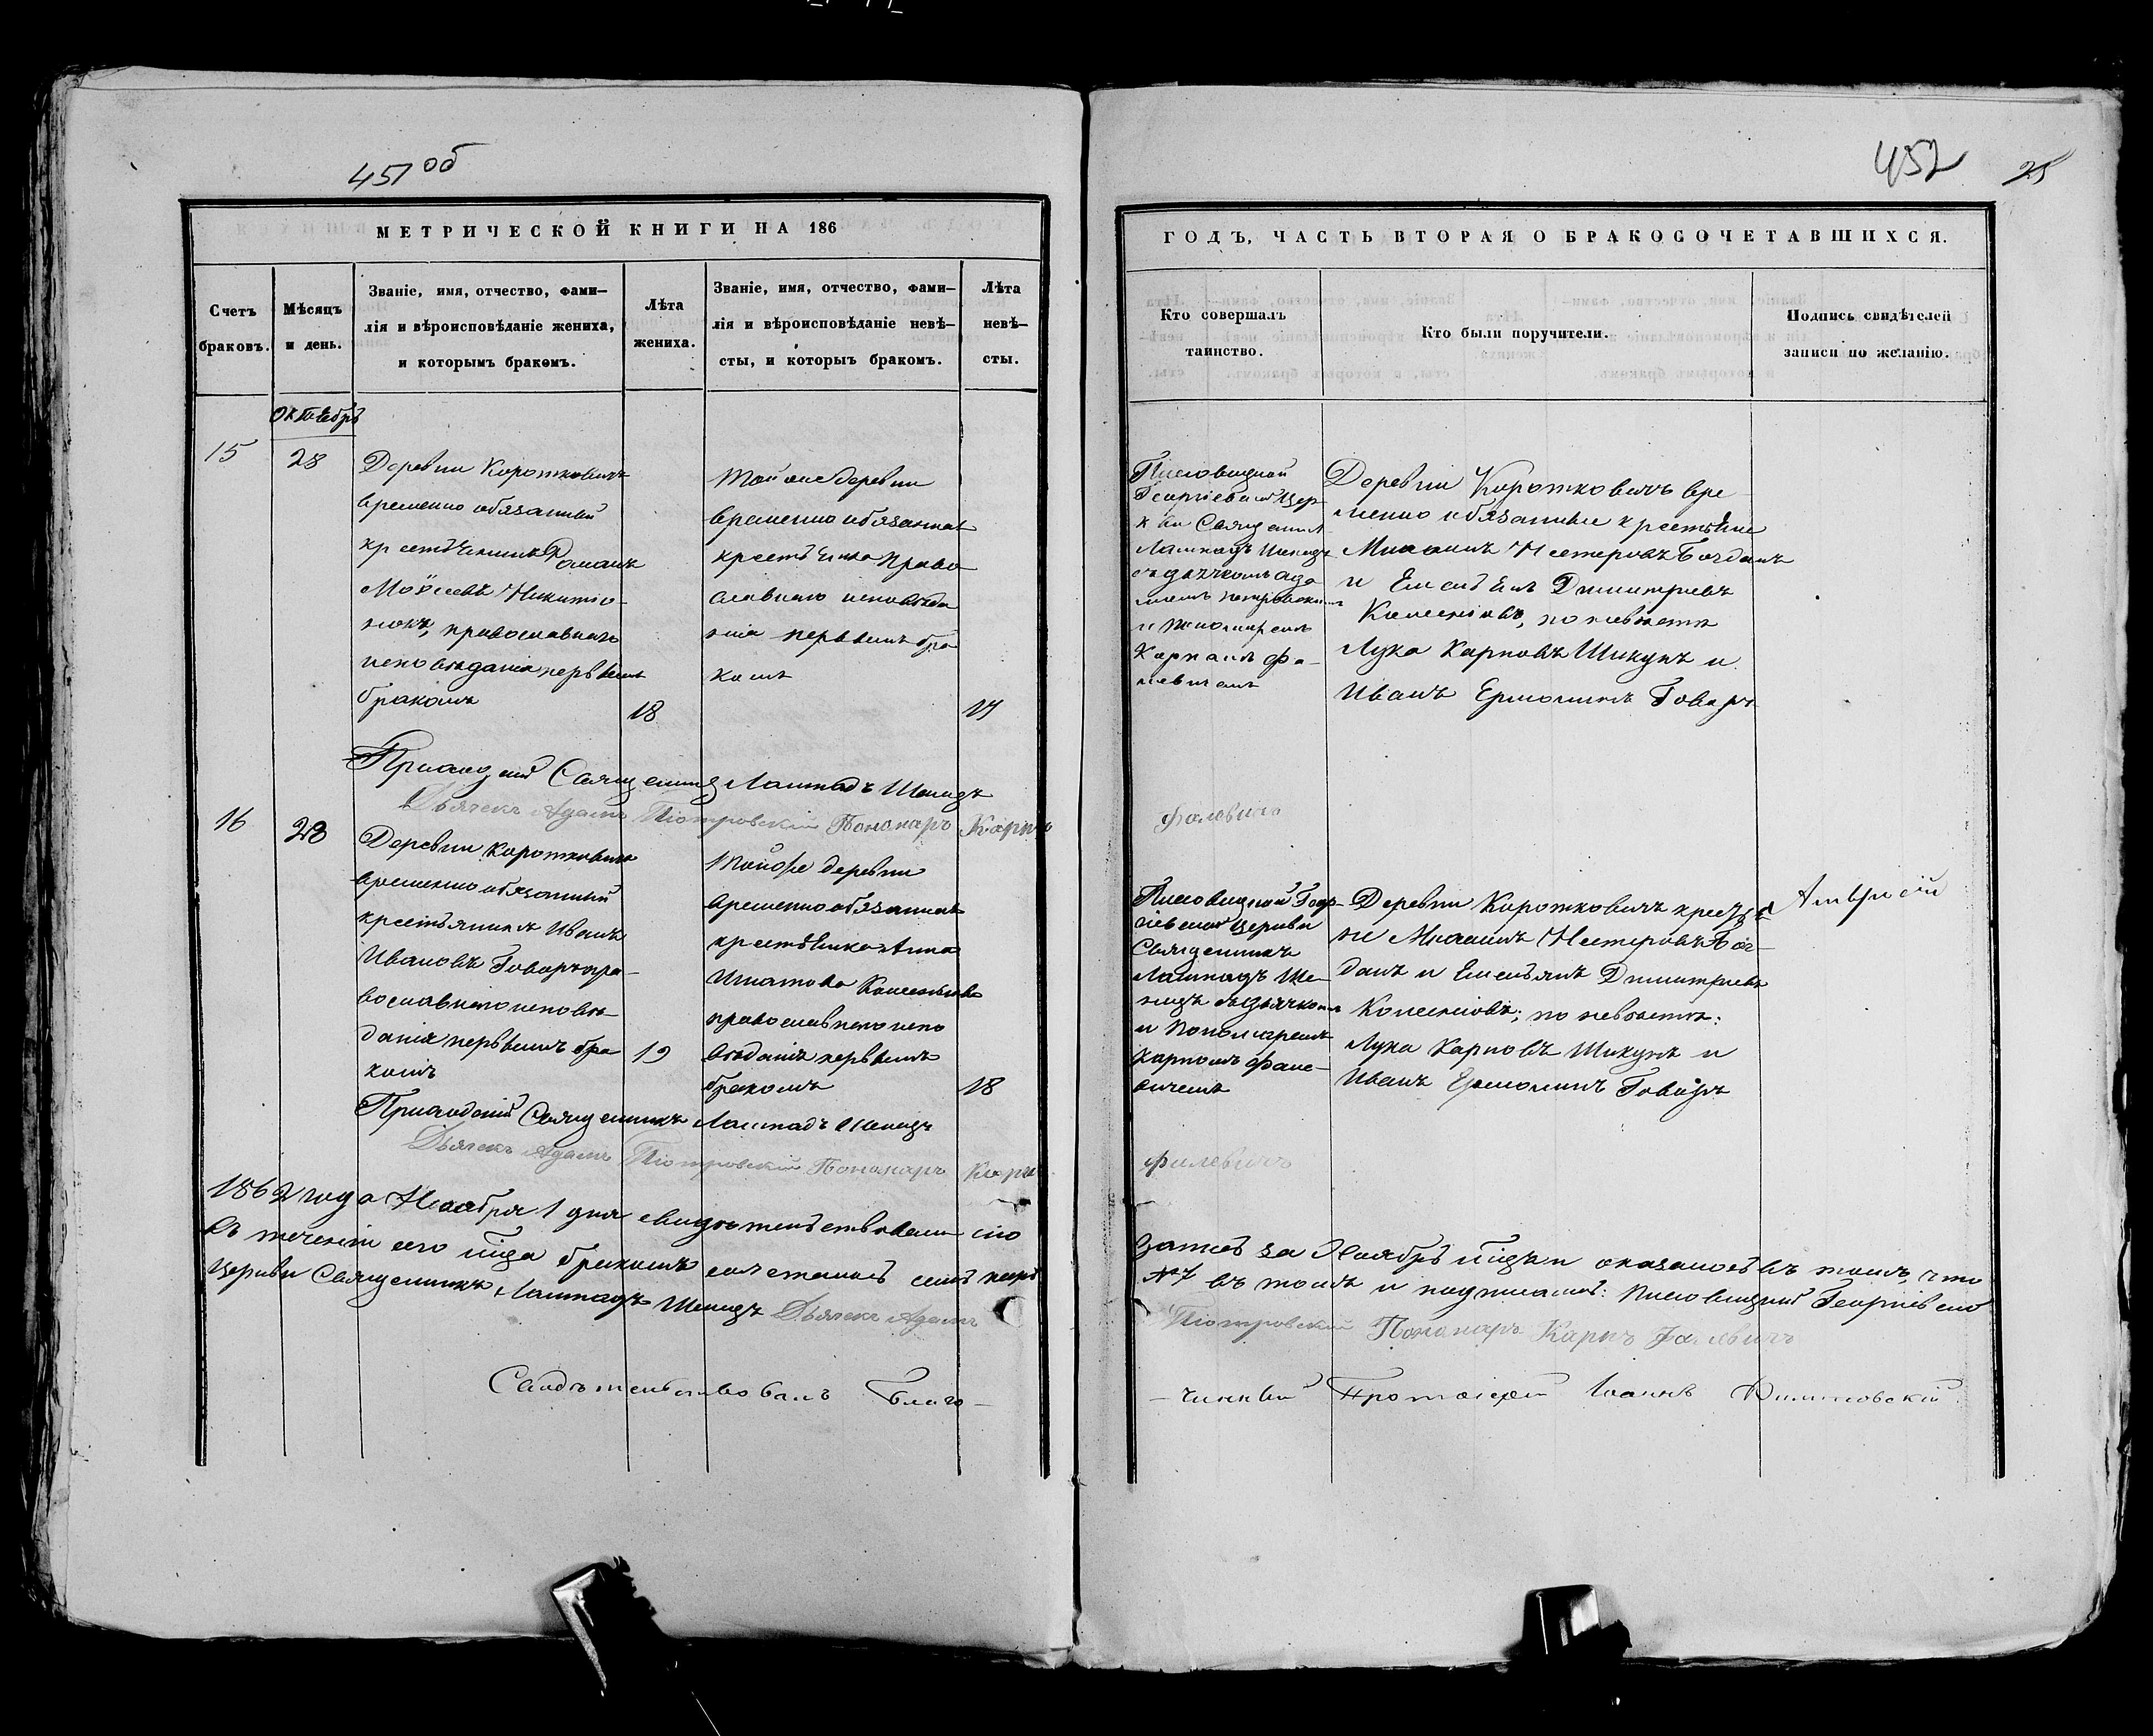 451 об
МЕТРИЧЕСКОЙ КНИГИ НА 186
Счетъ браковъ.
Мѣсяцъ и день.
Званіе, имя, отчество, фами-
лія и вѣроисповѣданіе жениха,
и которымъ бракомъ.
Лѣта
жениха.
Званіе, имя, отчество, фами-
лія и вѣроисповѣданіе невѣ-
сты, и которыъ бракомъ.
Лѣта
невѣ-
сты.
Октябрь
15
28
Деревни Короткович
временно обязанный
крестьянинъ Романъ
Моѵсеевъ Никитіо-
нокъ, православнаго
исповѣданія первымъ
бракомъ
18
Той же деревни
временно обязанная
крестьянка право
славнаго исповѣда
нія первымъ бра
комъ
17
Приходскій Священникъ Лампадъ Шениц
Дьячекъ Адамъ Піотровскій Пономарь Карпъ
16
28
Деревни Коротковичъ
временно обязанный
крестьянинъ Иванъ
Ивановъ Говоръ пра-
вославнаго исповѣ-
данія первымъ бра-
комъ
19
Той же деревни
временно обязанная
крестьянка Анна
Игнатова
православнаго испо
вѣданія первымъ
бракомъ
18
Приходскій Священникъ Лампадъ Шеницъ
Дьячекъ Адамъ Піотровскій Пономарь Карпъ
1862 года Ноября 1 дня свидѣтельствовали сію
въ теченіи сего мца бракомъ сочеталось семь паръ
Церкви Священникъ Лампадъ Шеницъ Дьячекъ Адамъ
Свидѣтельствовалъ Благо-
452
25
ГОДЪ, ЧАСТЬ ВТОРАЯ О БРАКОСОЧЕТАВШИХСЯ.
Кто совершалъ
таинство.
Кто были поручители.
Подпись свидѣтелей
записи по желанію.
Георгіевской Цер-
кви Священник
Лампадъ Шениц
съ дьячкомъ Ада
момъ Піотровским
и Пономаремъ
Карпомъ Фа-
левичемъ
Деревни Коротковичъ вре-
менно обязанные крестьяне
Михаилъ Нестеровъ Богданъ
и Емельянъ Дмитріевъ
по невѣстѣ
Лука Карповъ Шикунъ и
Иванъ Ермолинъ Говоръ
Фалевичъ
Георг-
іевской Церкви
Священникъ
Лампадъ Ше-
ницъ съ дьячкомъ
и Пономаремъ
Карпомъ Фале-
вичемъ
Деревни Коротковичъ крестья
не Михаилъ Нестеровъ Бог-
данъ и Емельянъ Дмитріевъ
по невѣстѣ:
Лука Карповъ Шикунъ и
Иванъ Ермолинъ Говоръ
Фалевичъ
запись за Ноябрь мцъ и оказалось въ томъ, что
№ 7 въ томъ и подписали: Георгіевской
Піотровскій Пономарь Карпъ Фалевичъ
-чинный Протоіерей Іоаннъ